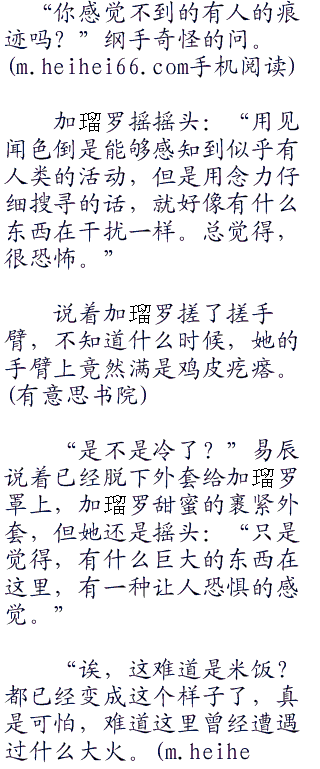 “你感觉不到的有人的痕
迹吗？”纲手奇怪的问。
(m.heihei66.com手机阅读)
加瑠罗摇摇头：“用见
闻色倒是能够感知到似乎有
人类的活动，但是用念力仔
细搜寻的话，就好像有什么
东西在干扰一样。总觉得，
很恐怖。”
说着加瑠罗搓了搓手
臂，不知道什么时候，她的
手臂上竟然满是鸡皮疙瘩。
(有意思书院)
“是不是冷了？”易辰
说着已经脱下外套给加瑠罗
罩上，加瑠罗甜蜜的裹紧外
套，但她还是摇头：“只是
觉得，有什么巨大的东西在
这里，有一种让人恐惧的感
觉。”
“诶，这难道是米饭？
都已经变成这个样子了，真
是可怕，难道这里曾经遭遇
过什么大火。(m.heihe